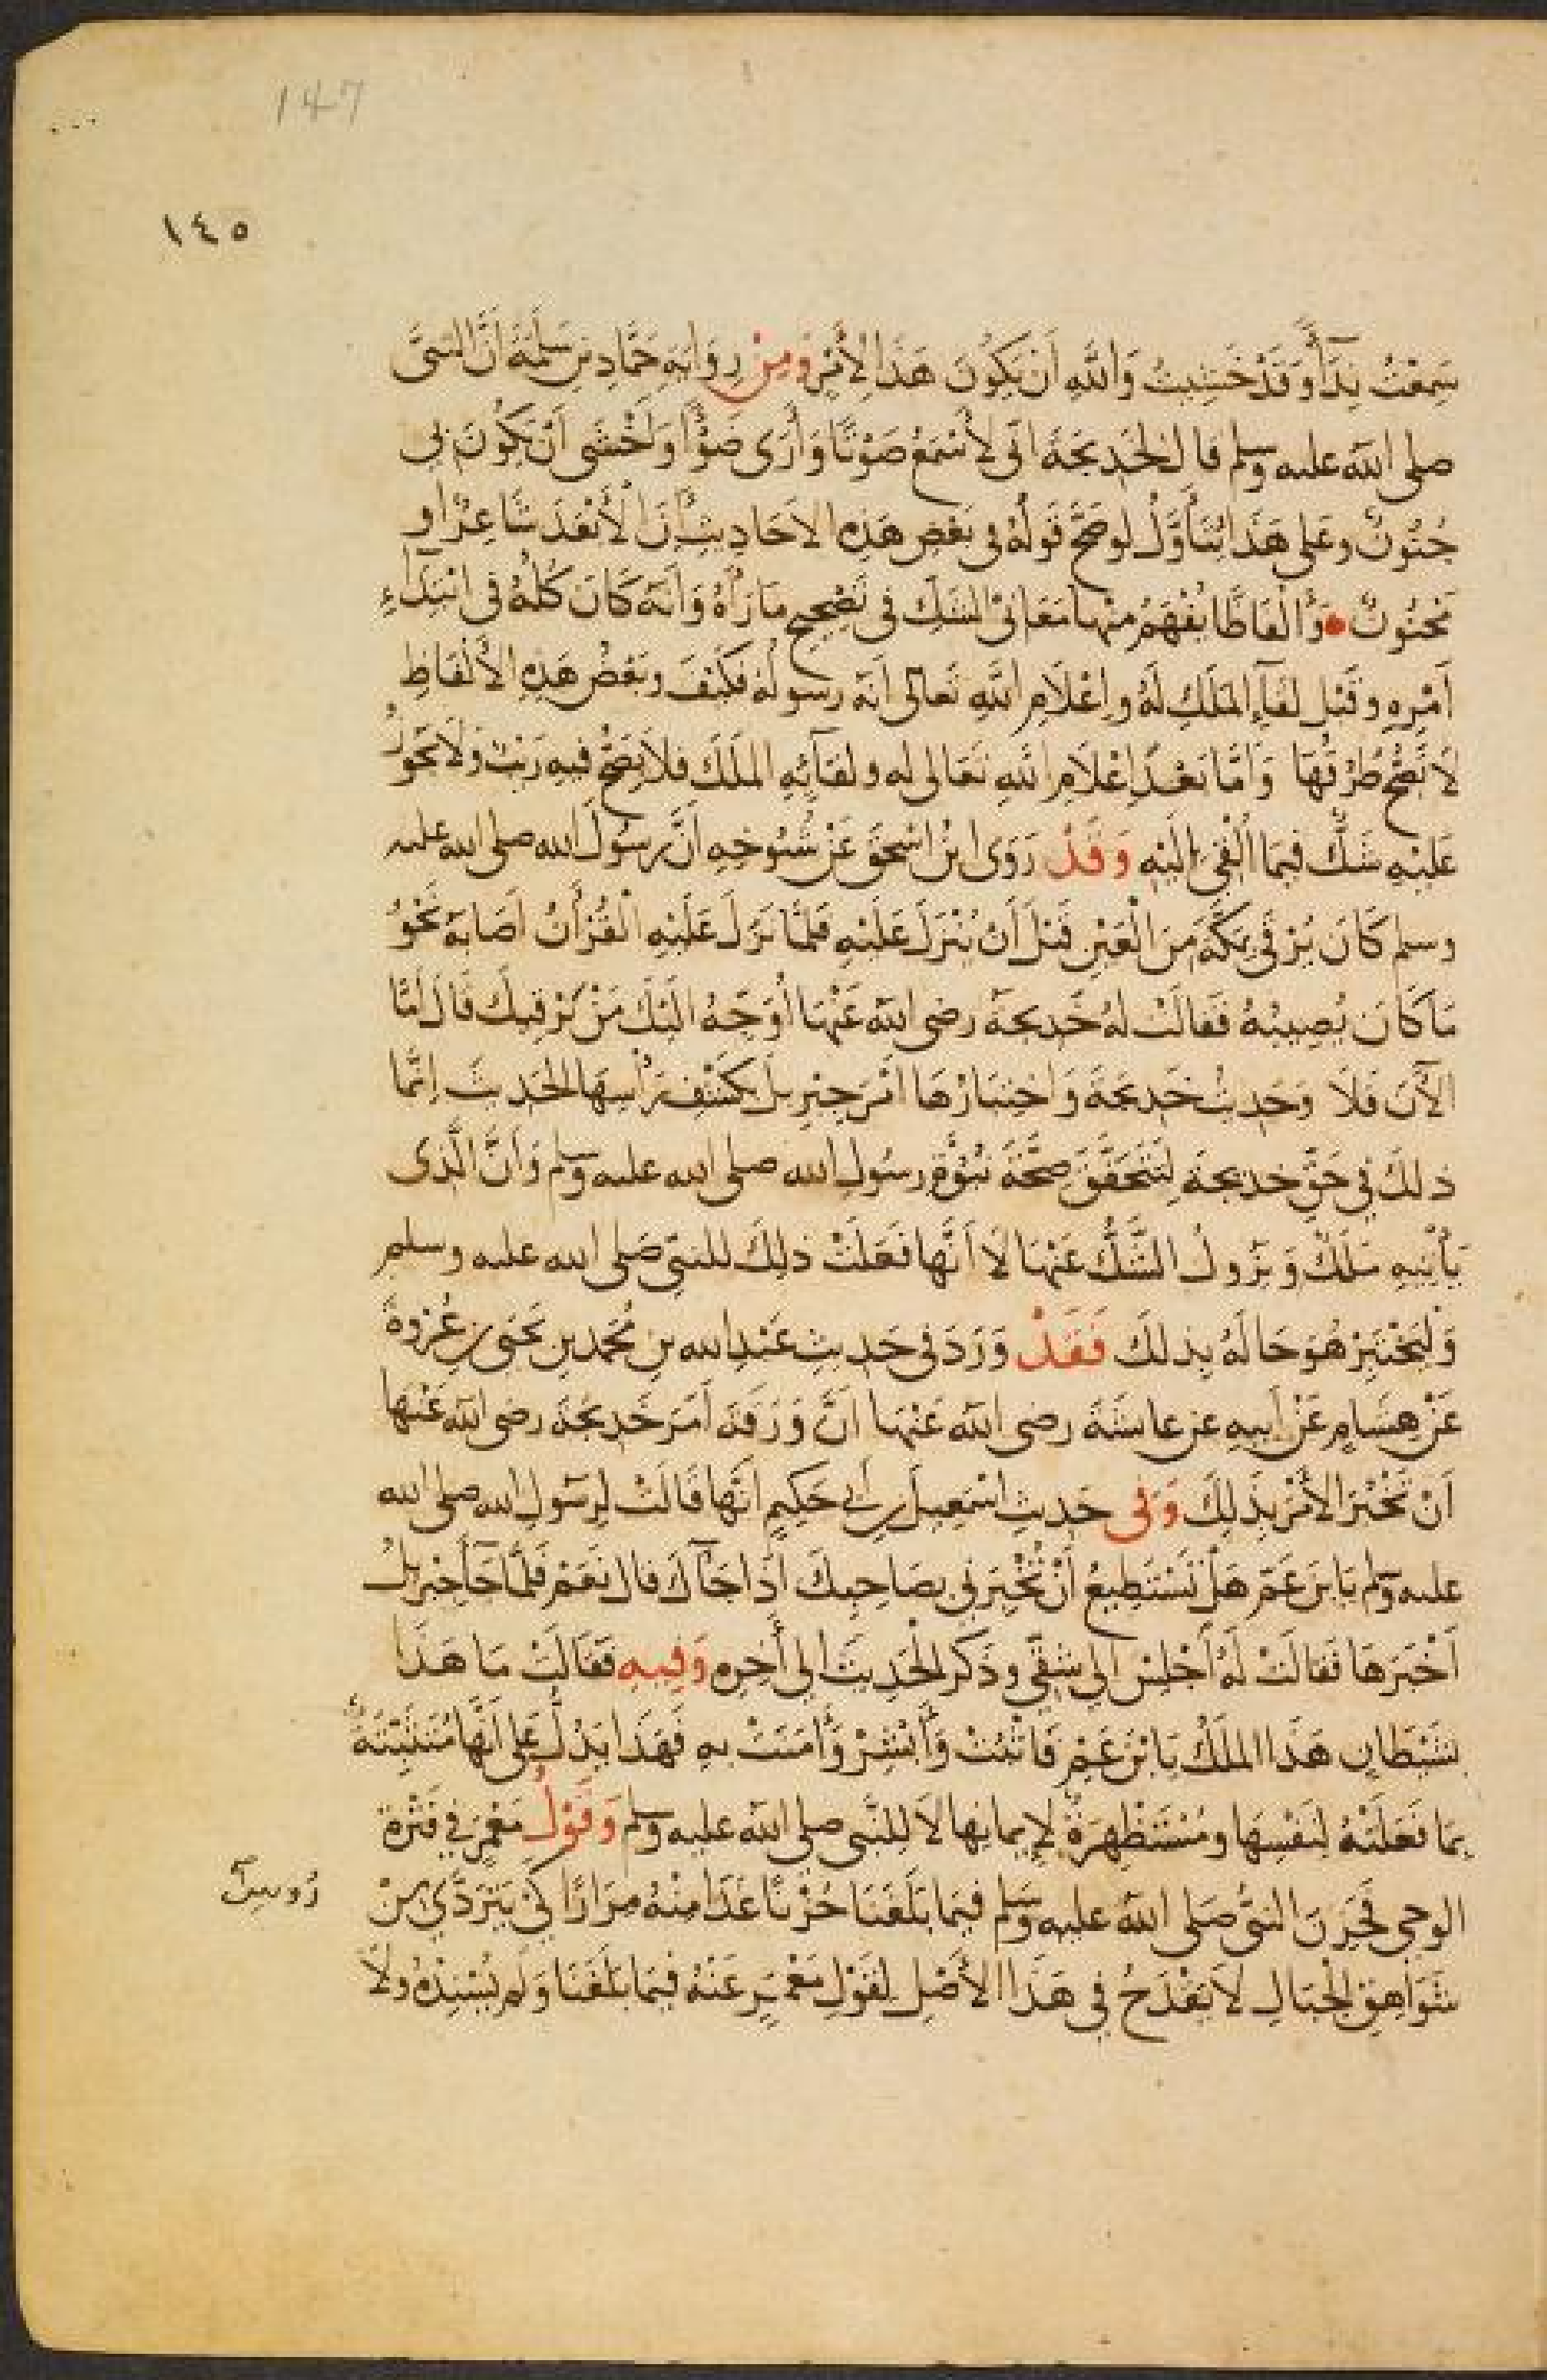 147
١٤٥
سَمِعْتُ نِدَآءً وَقَدْ خَشِيتُ وَاللَّهِ اَنْ يَكُونَ هَذَا لِأَمْرٍ وَمِنْ رِوَايَةِ حَمَّادِ بْنِ سَلَمَةَ اَنَّ النبىَّ
صلى الله عليه وسلم قال لخَدِيجَةَ انّى لاَسْمَعُ صَوْتًا وَأَرَى ضَوْأً وَأَخْشَى اَنْ يَكُونَ بِى
جُنُونٌ وعَلى هَذَا يُتَأَوَّلُ لو صَحَّ قَولُهُ فى بَعْضِ هَذِهِ الاَحَادِيثِ اِنَّ الْأَبْعَدَ شَاعِرٌ او
مَجْنُونٌ وَأَلْفَاظًا يُفْهَمُ منها مَعَانِىْ الشَكِّ فى تَصْحِيحِ مَا رَآهُ وَانَّهُ كَانَ كُلُّهُ فى ابْتِدَآءِ
اَمْرِهِ وقَبْل لِقَآءِ المَلَكِ لَهُ واِعْلاَمِ اللَّهِ تَعالى اَنَّه رسولُهُ فَكَيْفَ وبَعْضُ هَذِهِ الأَلْفَاظِ
لَا تَصِحُّ طُرْقُهَا وَامَّا بَعْدَ اِعْلَامِ اللَّهِ تَعَالى له ولِقَآئِهِ المَلَكَ فلا يَصِحُّ فيه رَيْبٌ وَلَا يَجُوزُ
عَلَيْهِ شَكٌّ فيمَا اُلْقِىَ اِلَيْهِ وَقَدْ رَوَى ابْنُ اسْحَقَ عَنْ شُيُوخِهِ اَنَّ رسُولَ الله صلى الله عليه
وسلم كَانَ يُرْقَى بمَكَّةَ مِنَ الْعَيْنِ قَبْلَ أَنْ يُنْزَلَ عَلَيْهِ فَلمَّا نَزَلَ عَلَيْهِ الْقُرْأَنُ اَصَابَهُ نَحْوُ
مَا كَانَ يُصِيبُهُ فَقالَتْ لهُ خَديجَةُ رضى الله عَنْهَا أُوَجِّهُ الَيْكَ مَنْ يَرْقيكَ قَالَ اَمَّا
الآنَ فَلَا وَحَدِيثُ خَدِيجَةَ وَاخْتِبَارُهَا اَمْرَ جِبْرِيلَ بكَشْفِ رَأْسِهَا الحَدِيثَ اِنَّمَا
ذلكَ فى حَقِّ خديجةَ لِتَتَحَقَّقَ صِحَّةَ نُبُوَّةِ رسُولِ الله صلى الله عليه وسلم وَاَنَّ الَّذِى
يَأْتِيهِ مَلَكٌ وَيَزُولَ الشَّكُّ عَنْهَا لَا اَنَّها فَعَلَتْ ذلِكَ للنبىِّ صَلى الله عليه وسلم
وَلْيَخْتَبِرَ هُوَ حَالَهُ بِذلكَ فَقَدْ وَرَدَ فى حَديثِ عَبْدِ الله بْنِ مُحَمد بْنِ يَحْيَى بن عُرْوَةَ
عَنْ هِشَامٍ عَنْ أَبيهِ عن عائشَةَ رضى الله عَنْهَا انَّ وَرَقَةَ اَمَرَ خَدِيجَةَ رضى الله عَنْها
اَنْ تَخْبُرَ الأَمْرَ بِذَلِكَ وَفى حَدِيثِ اسْمَعِيلَ بن أَبى حَكِيمٍ اَنَّها قَالَتْ لِرَسُولِ الله صلى الله
عليه وسلم يَا بنَ عَمِّ هَلْ تَسْتَطِيعُ أَنْ تُخْبِرَنِى بِصَاحِبِكَ اذَا جَآكَ قال نَعَمْ فَلمَّا جَآ جِبْرِيلُ
اَخْبَرَها فَقالَتْ لَهُ اَجْلِسْ الى شِقّى وذَكَرَ الحَدِيثَ الى أَخِرِهِ وَفِيهِ فَقَالَتْ مَا هَذَا
بِشَيْطَانٍ هَذَا المَلَكُ يَا بْنَ عَمِّ فَاثْبُتْ وَأَبْشِرْ وَأَمَنَتْ بهِ فَهَذَا يَدُلُّ عَلَى اَنَّها مُتَثَبِّتَةٌ
بمَا فَعَلَتْهُ لِنَفْسِهَا ومُسْتَظْهِرَةٌ لِإيمانِها لَا لِلنَّبى صلى الله عليه وسلم وَقَوْلُ مَعْمَرٍ فِى فَتْرَةِ
الوحى فَحَزِنَ النبىُّ صَلى الله عليه وسَلم فيمَا بَلَغَنَا حُزْنًا غَدَا مِنْهُ مِرَارًا كَىْ يَتَرَدَّى مِنْ
شَوَاهِقِ الْجِبَالِ لَا يَقْدَحُ فى هَذَا الأَصْلِ لِقَوْلِ مَعْمَرٍ عَنْهُ فيمَا بَلَغَنَا وَلَمْ يُسْنِدْهُ ولَا